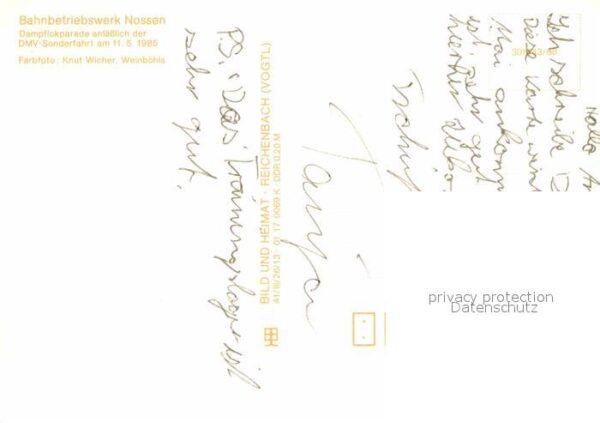 Bahnbetriebswerk Nossen
Dampflokparade anläßlich der
DMV-Sonderfahrt am 11. 5. 1985
Farbfoto: Knut Wicher, Weinböhla
BILD UND HEIMAT · REICHENBACH (VOGTL)
A1/III/26/13 · 01 17 0069 K DDR 0,20 M
Hallo
Ich schreibe
Diese Karte
Mai
ist sehr gut
Tschüß
Tanja
PS. "Das Trainingslager ist
sehr gut.
privacy protection
Datenschutz